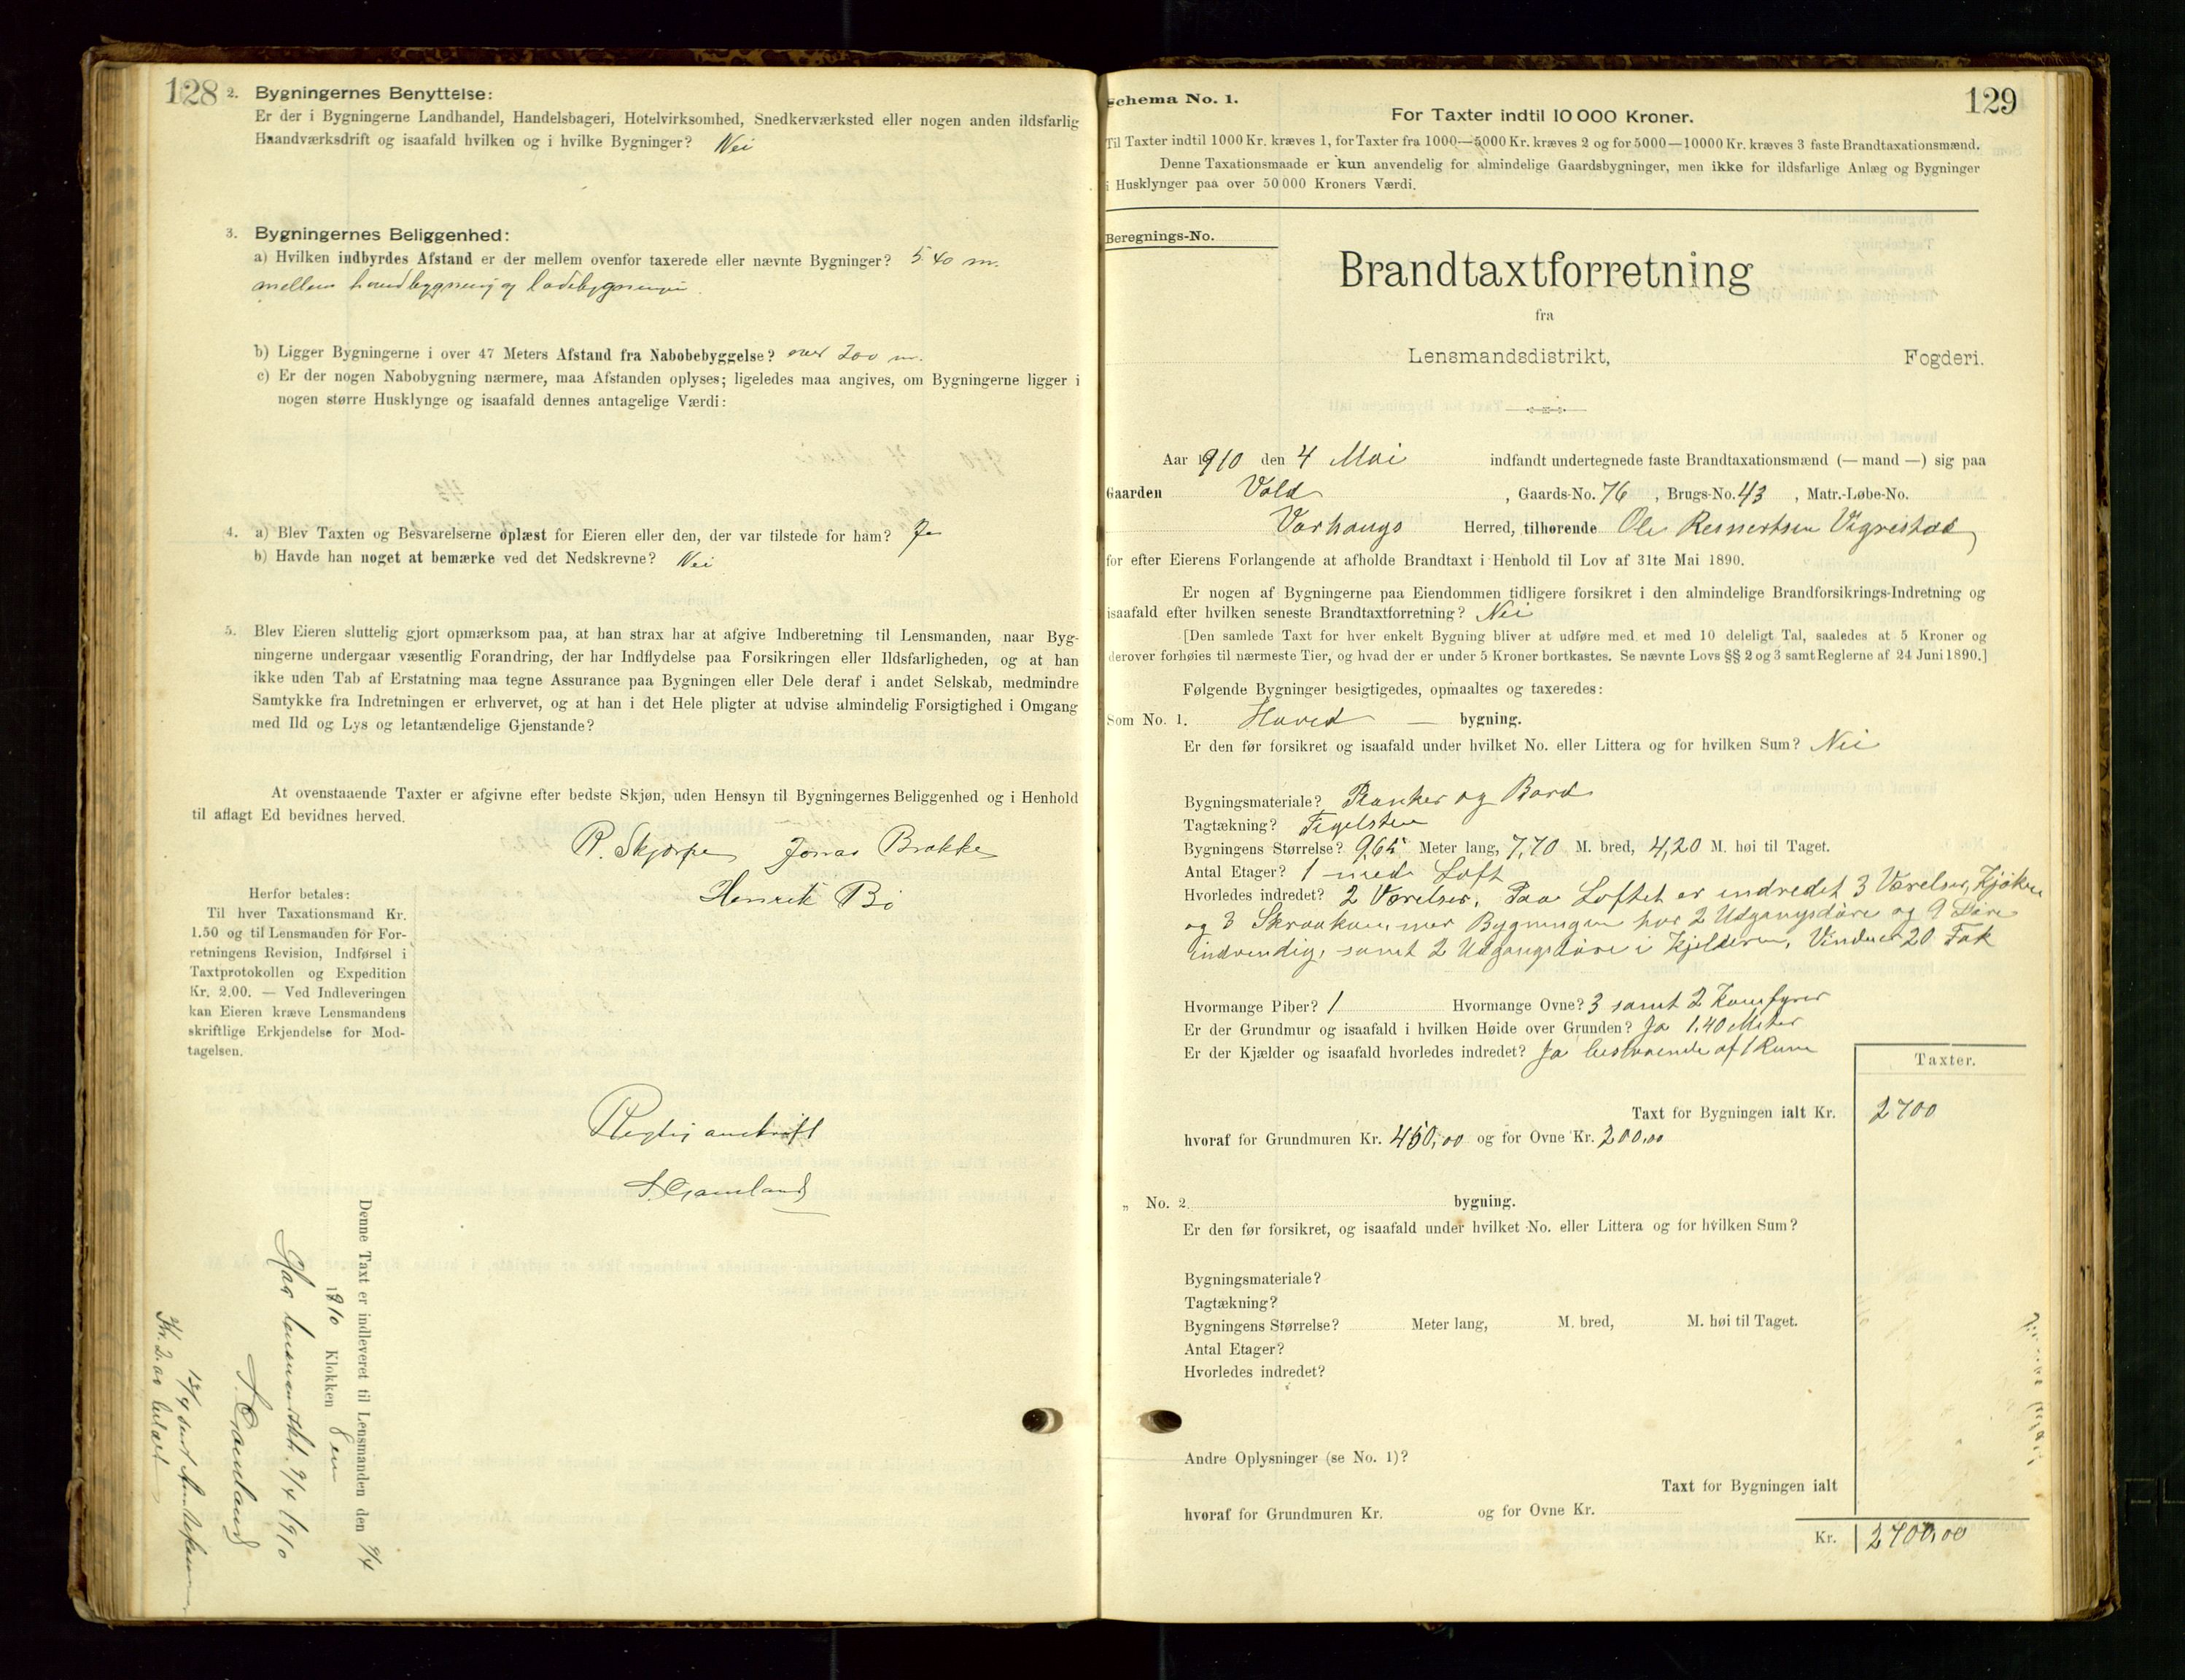 128
2. Bygningernes Benyttelse:
Er der i Bygningerne Landhandel, Handelsbageri, Hotelvirksomhed, Snedkerværksted eller nogen anden ildsfarlig
Haandværksdrift og isaafald hvilken og i hvilke Bygninger? Nei
3. Bygningernes Beliggenhed:
a) Hvilken indbyrdes Afstand er der mellem ovenfor taxerede eller nævnte Bygninger? 5.40 m.
mellem ladebygningen.
b) Ligger Bygningerne i over 47 Meters Afstand fra Nabobebyggelse? over 200 m.
c) Er der nogen Nabobygning nærmere, maa Afstanden oplyses; ligeledes maa angives, om Bygningerne ligger i
nogen større Husklynge og isaafald dennes antagelige Værdi:
4. a) Blev Taxten og Besvarelserne oplæst for Eieren eller den, der var tilstede for ham? Ja
b) Havde han noget at bemærke ved det Nedskrevne? Nei
5. Blev Eieren sluttelig gjort opmærksom paa, at han strax har at afgive Indberetning til Lensmanden, naar Byg-
ningerne undergaar væsentlig Forandring, der har Indflydelse paa Forsikringen eller Ildsfarligheden, og at han
ikke uden Tab af Erstatning maa tegne Assurance paa Bygningen eller Dele deraf i andet Selskab, medmindre
Samtykke fra Indretningen er erhvervet, og at han i det Hele pligter at udvise almindelig Forsigtighed i Omgang
med Ild og Lys og letantændelige Gjenstande?
At ovenstaaende Taxter er afgivne efter bedste Skjøn, uden Hensyn til Bygningernes Beliggenhed og i Henhold
til aflagt Ed bevidnes herved.
R. Skjærpe Jonas Brække
Henrik Bø
Herfor betales:
Til hver Taxationsmand Kr.
1.50 og til Lensmanden for For-
retningens Revision, Indførsel i
Taxtprotokollen og Expedition
Kr. 2.00. — Ved Indleveringen
kan Eieren kræve Lensmandens
skriftlige Erkjendelse for Mod-
tagelsen.
Rigtig
Denne Taxt er indleveret til Lensmanden den 9/4
1910 Klokken
9/4 1910
Kr. 2.00
129
Schema No. 1.
For Taxter indtil 10 000 Kroner.
Til Taxter indtil 1000 Kr. kræves 1, for Taxter fra 1000—5000 Kr. kræves 2 og for 5000—10000 Kr. kræves 3 faste Brandtaxationsmænd.
Denne Taxationsmaade er kun anvendelig for almindelige Gaardsbygninger, men ikke for ildsfarlige Anlæg og Bygninger
i Husklynger paa over 50 000 Kroners Værdi.
Beregnings-No.
Brandtaxtforretning
fra
Lensmandsdistrikt, Fogderi.
Aar 1910 den 4 Mai indfandt undertegnede faste Brandtaxationsmænd (— mand —) sig paa
Gaarden Vold, Gaards-No. 76, Brugs-No. 43, Matr.-Løbe-No.
Varhaugs Herred, tilhørende Ole Reinertsen Vigrestad
for efter Eierens Forlangende at afholde Brandtaxt i Henhold til Lov af 31te Mai 1890.
Er nogen af Bygningerne paa Eiendommen tidligere forsikret i den almindelige Brandforsikrings-Indretning og
isaafald efter hvilken seneste Brandtaxtforretning? Nei
[Den samlede Taxt for hver enkelt Bygning bliver at udføre med et med 10 deleligt Tal, saaledes at 5 Kroner og
derover forhøies til nærmeste Tier, og hvad der er under 5 Kroner bortkastes. Se nævnte Lovs §§ 2 og 3 samt Reglerne af 24 Juni 1890.]
Følgende Bygninger besigtigedes, opmaaltes og taxeredes:
Som No. 1. Hoved — bygning.
Er den før forsikret og isaafald under hvilket No. eller Littera og for hvilken Sum? Nei
Bygningsmateriale? Planker og Bord
Tagtækning? Teglsten
Bygningens Størrelse? 9,65 Meter lang, 7,70 M. bred, 4,20 M. høi til Taget.
Antal Etager? 1 med Loft
Hvorledes indredet? 2 Værelser, Paa Loftet er indredet 3 Værelser, Kjøkken
og 3 Skraakammer Bygningen har 2 Udgangsdøre og 9 Døre
indvendig, samt 2 Udgangsdøre i Kjelderen, Vinduer 20 Fak
Hvormange Piber? 1 Hvormange Ovne? 3 samt 2 Komfyrer
Er der Grundmur og isaafald i hvilken Høide over Grunden? Ja 1,40 Meter
Er der Kjælder og isaafald hvorledes indredet? Ja bestaaende af 1 Rum
Taxter.
Taxt for Bygningen ialt Kr. 2700
hvoraf for Grundmuren Kr. 450,00 og for Ovne Kr. 200,00
„ No. 2. bygning.
Er den før forsikret, og isaafald under hvilket No. eller Littera og for hvilken Sum?
Bygningsmateriale?
Tagtækning?
Bygningens Størrelse? Meter lang, M. bred, M. høi til Taget.
Antal Etager?
Hvorledes indredet?
Andre Oplysninger (se No. 1)?
Taxt for Bygningen ialt
hvoraf for Grundmuren Kr. og for Ovne Kr.
Kr. 2700,00